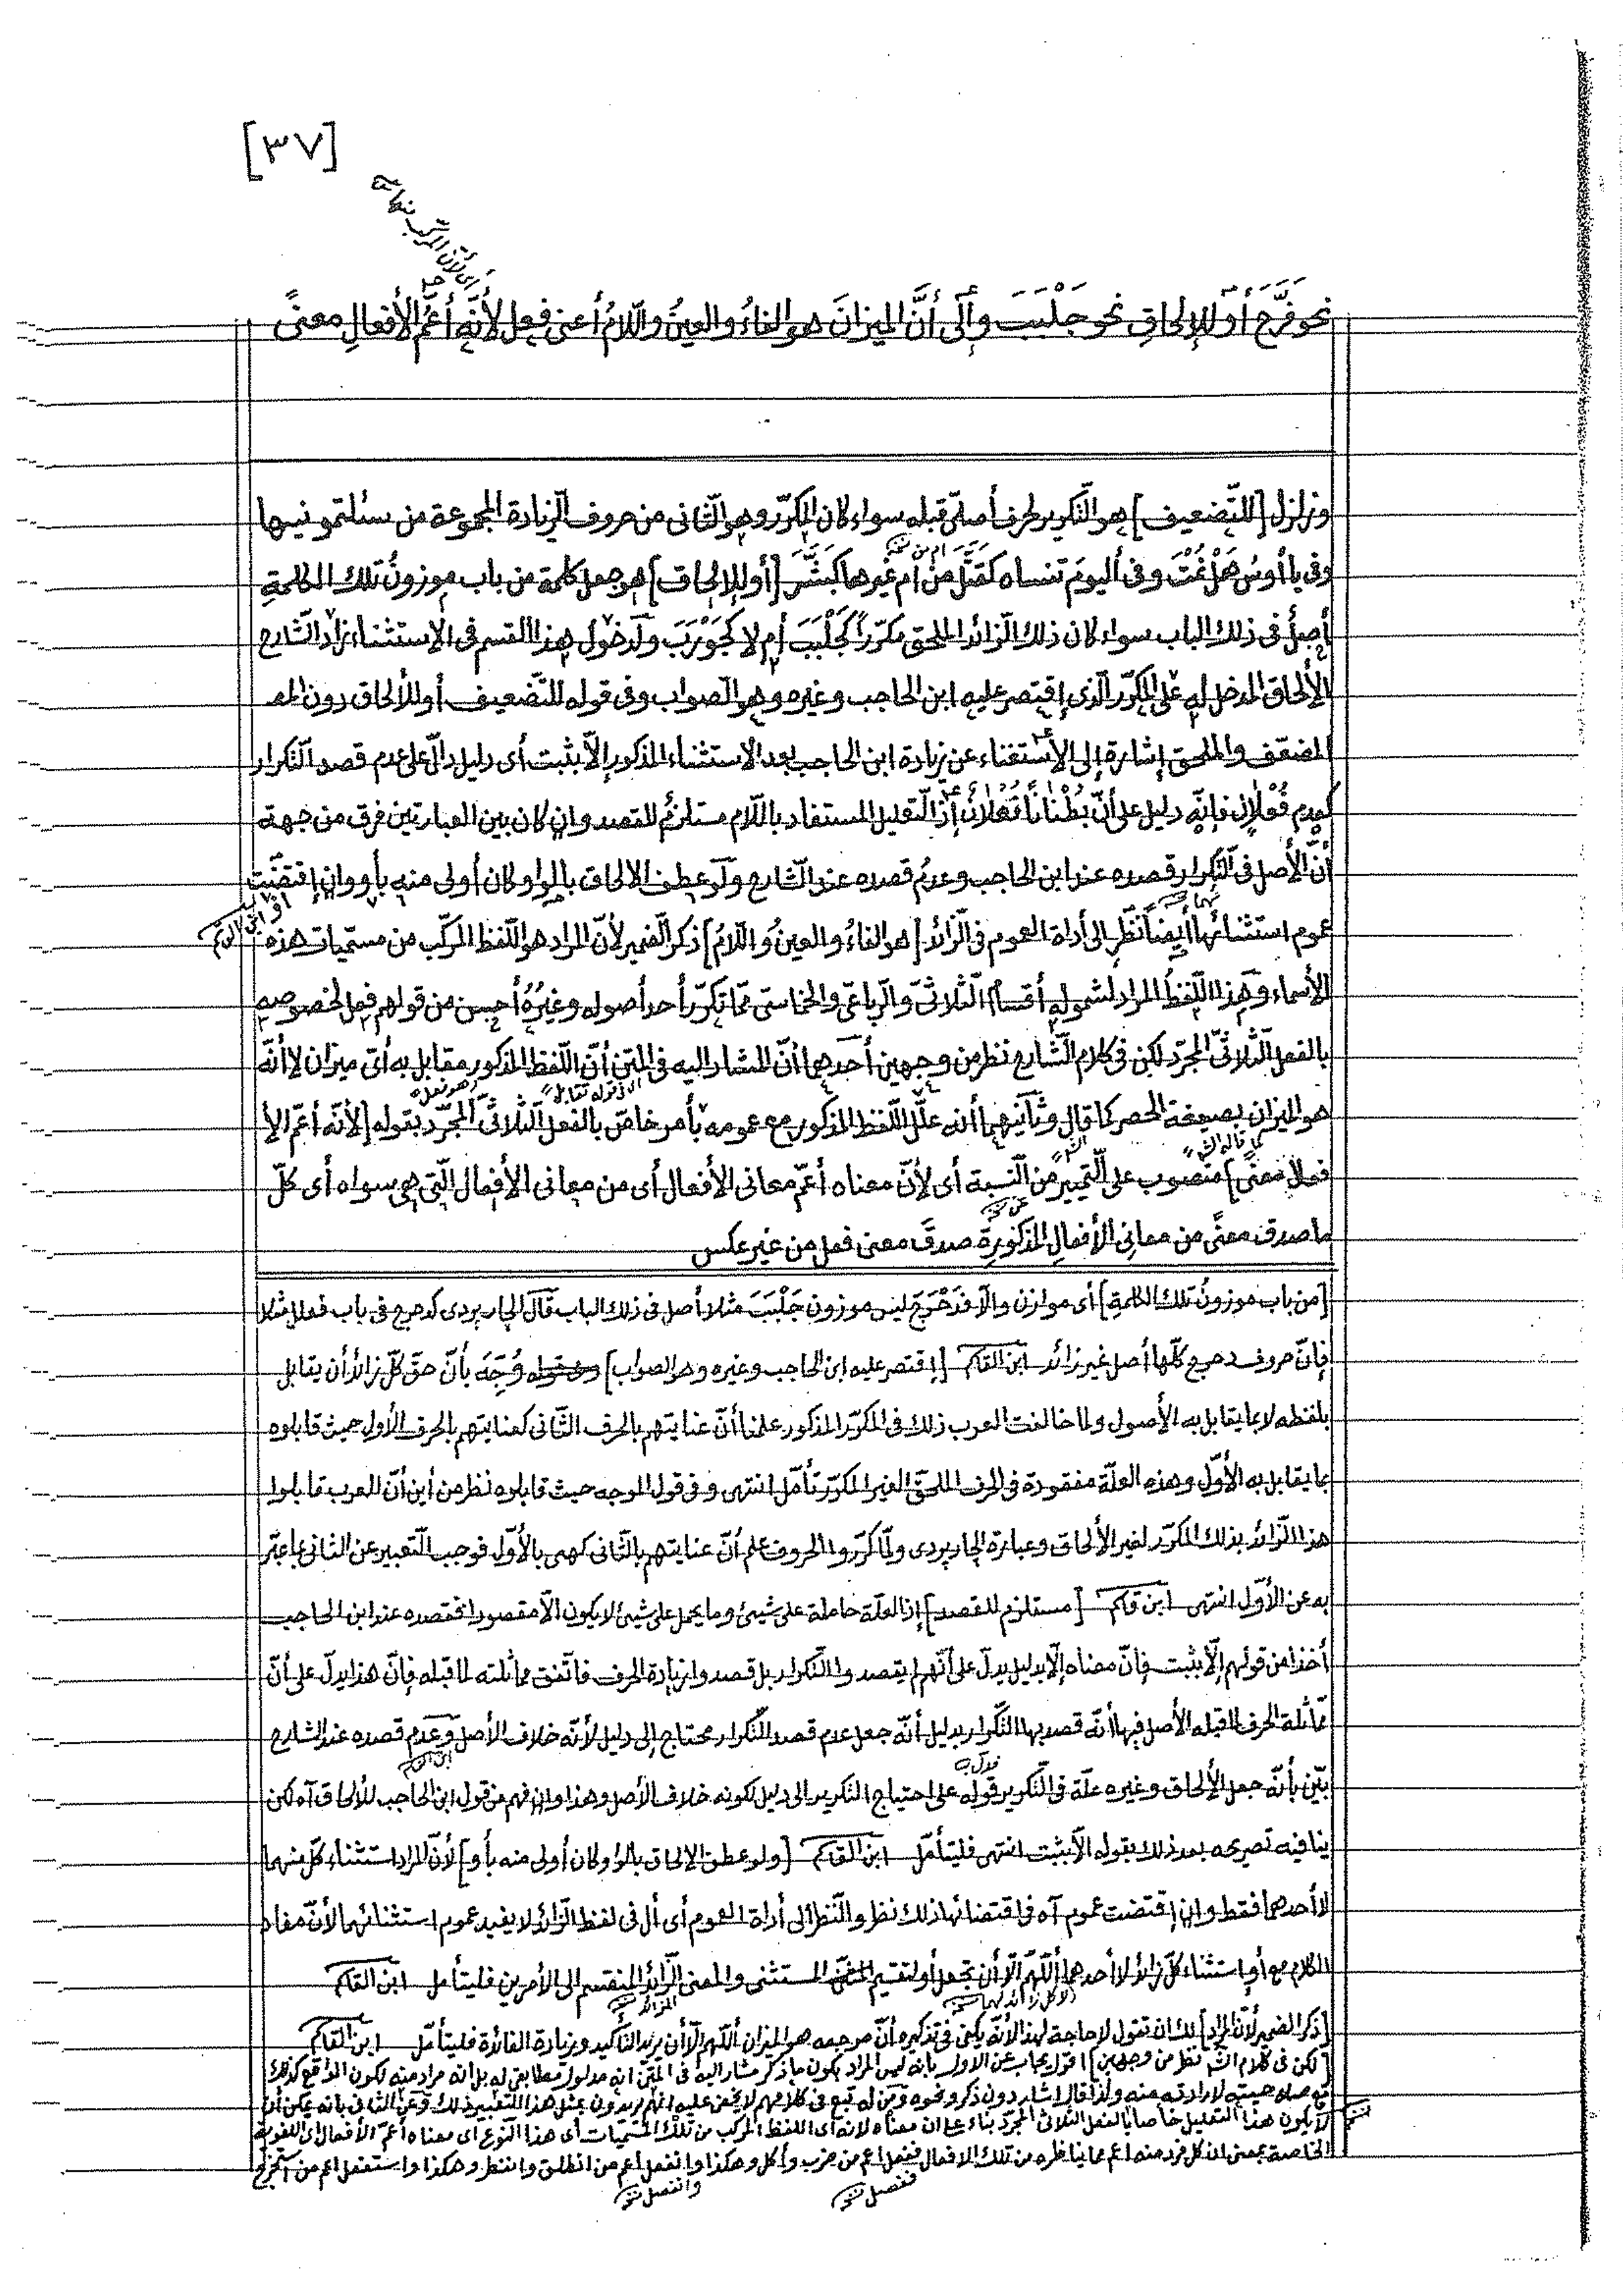 [٣٧]
نحو فَرَّحَ أو للإلحاقِ نحو جَلْبَبَ وإلى أنَّ الميزانَ هو الفاءُ والعينُ واللّامُ أعنى فعل لأنّه أعمُّ الأفعالِ معنًى
وزلزل [للتّضعيف] هو التّكرير لحرف أصلىّ قبله سواء كان المكرّر وهو الثّانى من حروف الزيادة المجموعة من سئلتمونيها
وفى يا أوسُ هَلْ نُمْتَ وفى أليومَ تنساه كقَتَّل من أم غيرها كبَشَّرَ [أو للإلحاق] هو جعل كلمة من باب موزونُ تلك الكلمةِ
أصلٌ فى ذلك الباب سواء كان ذلك الزّائد الملحق مكرّراً كجَلْبَبَ أم لا كجَوْرَبَ ولدخول هذا القسم فى الاستثناء زاد الشّارح
الألحاق المدخل له على المكرّر الّذى إقتصر عليه ابن الحاجب وغيره وهو الصواب وفى قوله للتّضعيف أو للألحاق دون المعـ
المضعّف والملحق إشارة إلى الإستغناء عن زيادة ابن الحاجب بعد الاستثناء المذكور إلاّ بثبت أى دليل دالّ على عدم قصد التّكرار
كعدم فُعْلال فإنّه دليل على أنّ بُطْنَانًا فُعْلَانٌ إذ التّعليل المستفاد باللّام مستلزمٌ للقصد وإن كان بين العبارتين فرق من جهة
أنّ الأصل فى التّكرار قصده عند ابن الحاجب وعدمُ قصده عند الشّارح ولو عطف الالحاق بالواو كان أولى منه بأو وان إقتضت
عموم استثنائهما أيضاً نظر إلى أداة العموم فى الزّائد [هو الفاءُ والعينُ واللّامُ] ذكر الضّمير لأنّ المراد هو اللّفظ المركّب من مسمّيات هذه
الأسماء وهذا اللّفظُ المراد لشموله أقسام الثّلاثىّ والرّباعىّ والخماسىّ ممّا تكرّر أحد أصوله وغيرُهُ أحسن من قولهم فعل لخصوصه
بالفعل الثّلاثىّ المجرّد لكن فى كلام الشّارح نظر من وجهين أحدهما أنّ المشار اليه فى المتن أنّ اللّفظ المذكور مقابل به أى ميزان لا أنّه
هو الميزان بصيغة الحصر كما قال وثانيهما أنه علّل اللّفظ المذكور مع عمومه بأمر خاصّ بالفعل الثّلاثىّ المجرّد بقوله [لأنّه أعمّ الأ
فعال معنًى] منصوب على التّمييز من النّسبة أى لأنّ معناه أعمّ معانى الأفعال أى من معانى الأفعال الّتى هى سواه أى كلّ
ما صدق معنًى من معانِى الأفعالِ المذكورةِ صدقَ معنى فعل من غير عكس
[من باب موزونُ تلك الكلمةِ] أى موازن والّا فدَحْرَجَ ليس موزون جَلْبَبَ مثلا أصل فى ذلك الباب قال الجاربردى كدحرج فى باب فعلل مثلا
فإنّ حروف دحرج كلّها أصل غير زائد ابن القاسم [إقتصر عليه ابن الحاجب وغيره وهو الصواب] وُجِّهَ بأنّ حقّ كلّ زائد أن يقابل
بلفظه لا بما يقابل به الأصول ولما خالفت العرب ذلك فى المكرّر المذكور علمنا أنّ عنايتهم بالحرف الثّانى كعنايتهم بالحرف الأول حيث قابلوه
بما يقابل به الأوّل وهذه العلّة مفقودة فى الحرف الملحق الغير المكرّر تأمّل انتهى وفى قول الموجه حيث قابلوه نظر من أين أنّ العرب قابلوا
هذا الزّائد بذلك المكرّر لغير الألحاق وعبارة الجاربردى ولمّا كرّروا الحروف علم أنّ عنايتهم بالثّانى كهى بالأوّل فوجب التّعبير عن الثانى بما عبّر
به عن الأوّل انتهى ابن قاسم [مستلزم للقصد] إذ العلّة حاملة على شيئ وما يحمل على شيئ لا يكون الّا مقصودا فقصده عند ابن الحاجب
أخذا من قولهم إلّا بثبت فإنّ معناه إلّا بدليل يدلّ على أنّهم لم يقصدوا التّكرار بل قصدوا زيادة الحرف فاتّفق مماثلته لما قبله فإنّ هذا يدلّ على أنّ
ممّاثلة الحرف لما قبله الأصل فيها أنّه قصد بها التّكرار بدليل أنّه جعل عدم قصد التّكرار محتاج إلى دليل لأنّه خلاف الأصل وعدم قصده عند الشارح
بيّن بأنّه جعل الألحاق وغيره علّة فى التّكرير قوله على احتياج التكرير الى دليل لكونه خلاف الأصل وهذا وان فهم من قول ابن الحاجب للألحاق آه لكن
ينافيه تصريحه بعد ذلك بقوله الّا بثبت انتهى فليتأمّل ابن القاسم [ولو عطف الإلحاق بالواو كان أولى منه بأو] لأنّ المراد استثناء كلّ منهما
لا أحدهما فقط وان إقتضت عموم آه فى اقتضائها ذلك نظر والنّظر إلى أداة العموم أى أل فى لفظ الزّائد لا يفيد عموم استثنائهما لأنّ مفاد
الكلام مع أو استثناء كلّ زائد لأحدهما أللّهمّ الّا أن تجعل أو لتقسيم المستثنى والمعنى الزّائد المنقسم الى الأمرين فليتأمل ابن القاسم
[ذكر الضمير لأنّ المراد] لك ان تقول لا حاجة لهذا لأنّه يكفى فى تذكيره أنّ مرجعه هو الميزان أللّهمّ الّا أن يريد التّأكيد وبزيادة الفائدة فليتأمّل ابن القاسم
[لكن فى كلام الش نظر من وجهين] اقول يجاب عن الاول بانه ليس المراد بكون ما ذكر مشار اليه فى المتن انه مدلول مطابقى له بل انه مراد منه لكون الواقع كذلك
لارادته منه ولذا قال اشار دون ذكر ونحوه ومن له تتبع فى كلامهم لا يخفى عليه انهم يريدون بمثل هذا التعبير ذلك وعن الثانى بأنه يمكن أن
لا يكون هذا التعليل خاصا بالفعل الثلاثى المجرّد بناء على ان معناه لانه اى اللفظ المركب من تلك المسمّيات أى هذا النّوع اى معناه أعمّ الأفعال اى اللغوية
الخاصة بمعنى ان كل فرد منه اعم مما يناظره من تلك الافعال ففعل اعم من ضرب وأكل وهكذا وانفعل أعم من انطلق وانفطر وهكذا واستفعل اعم من استخرج